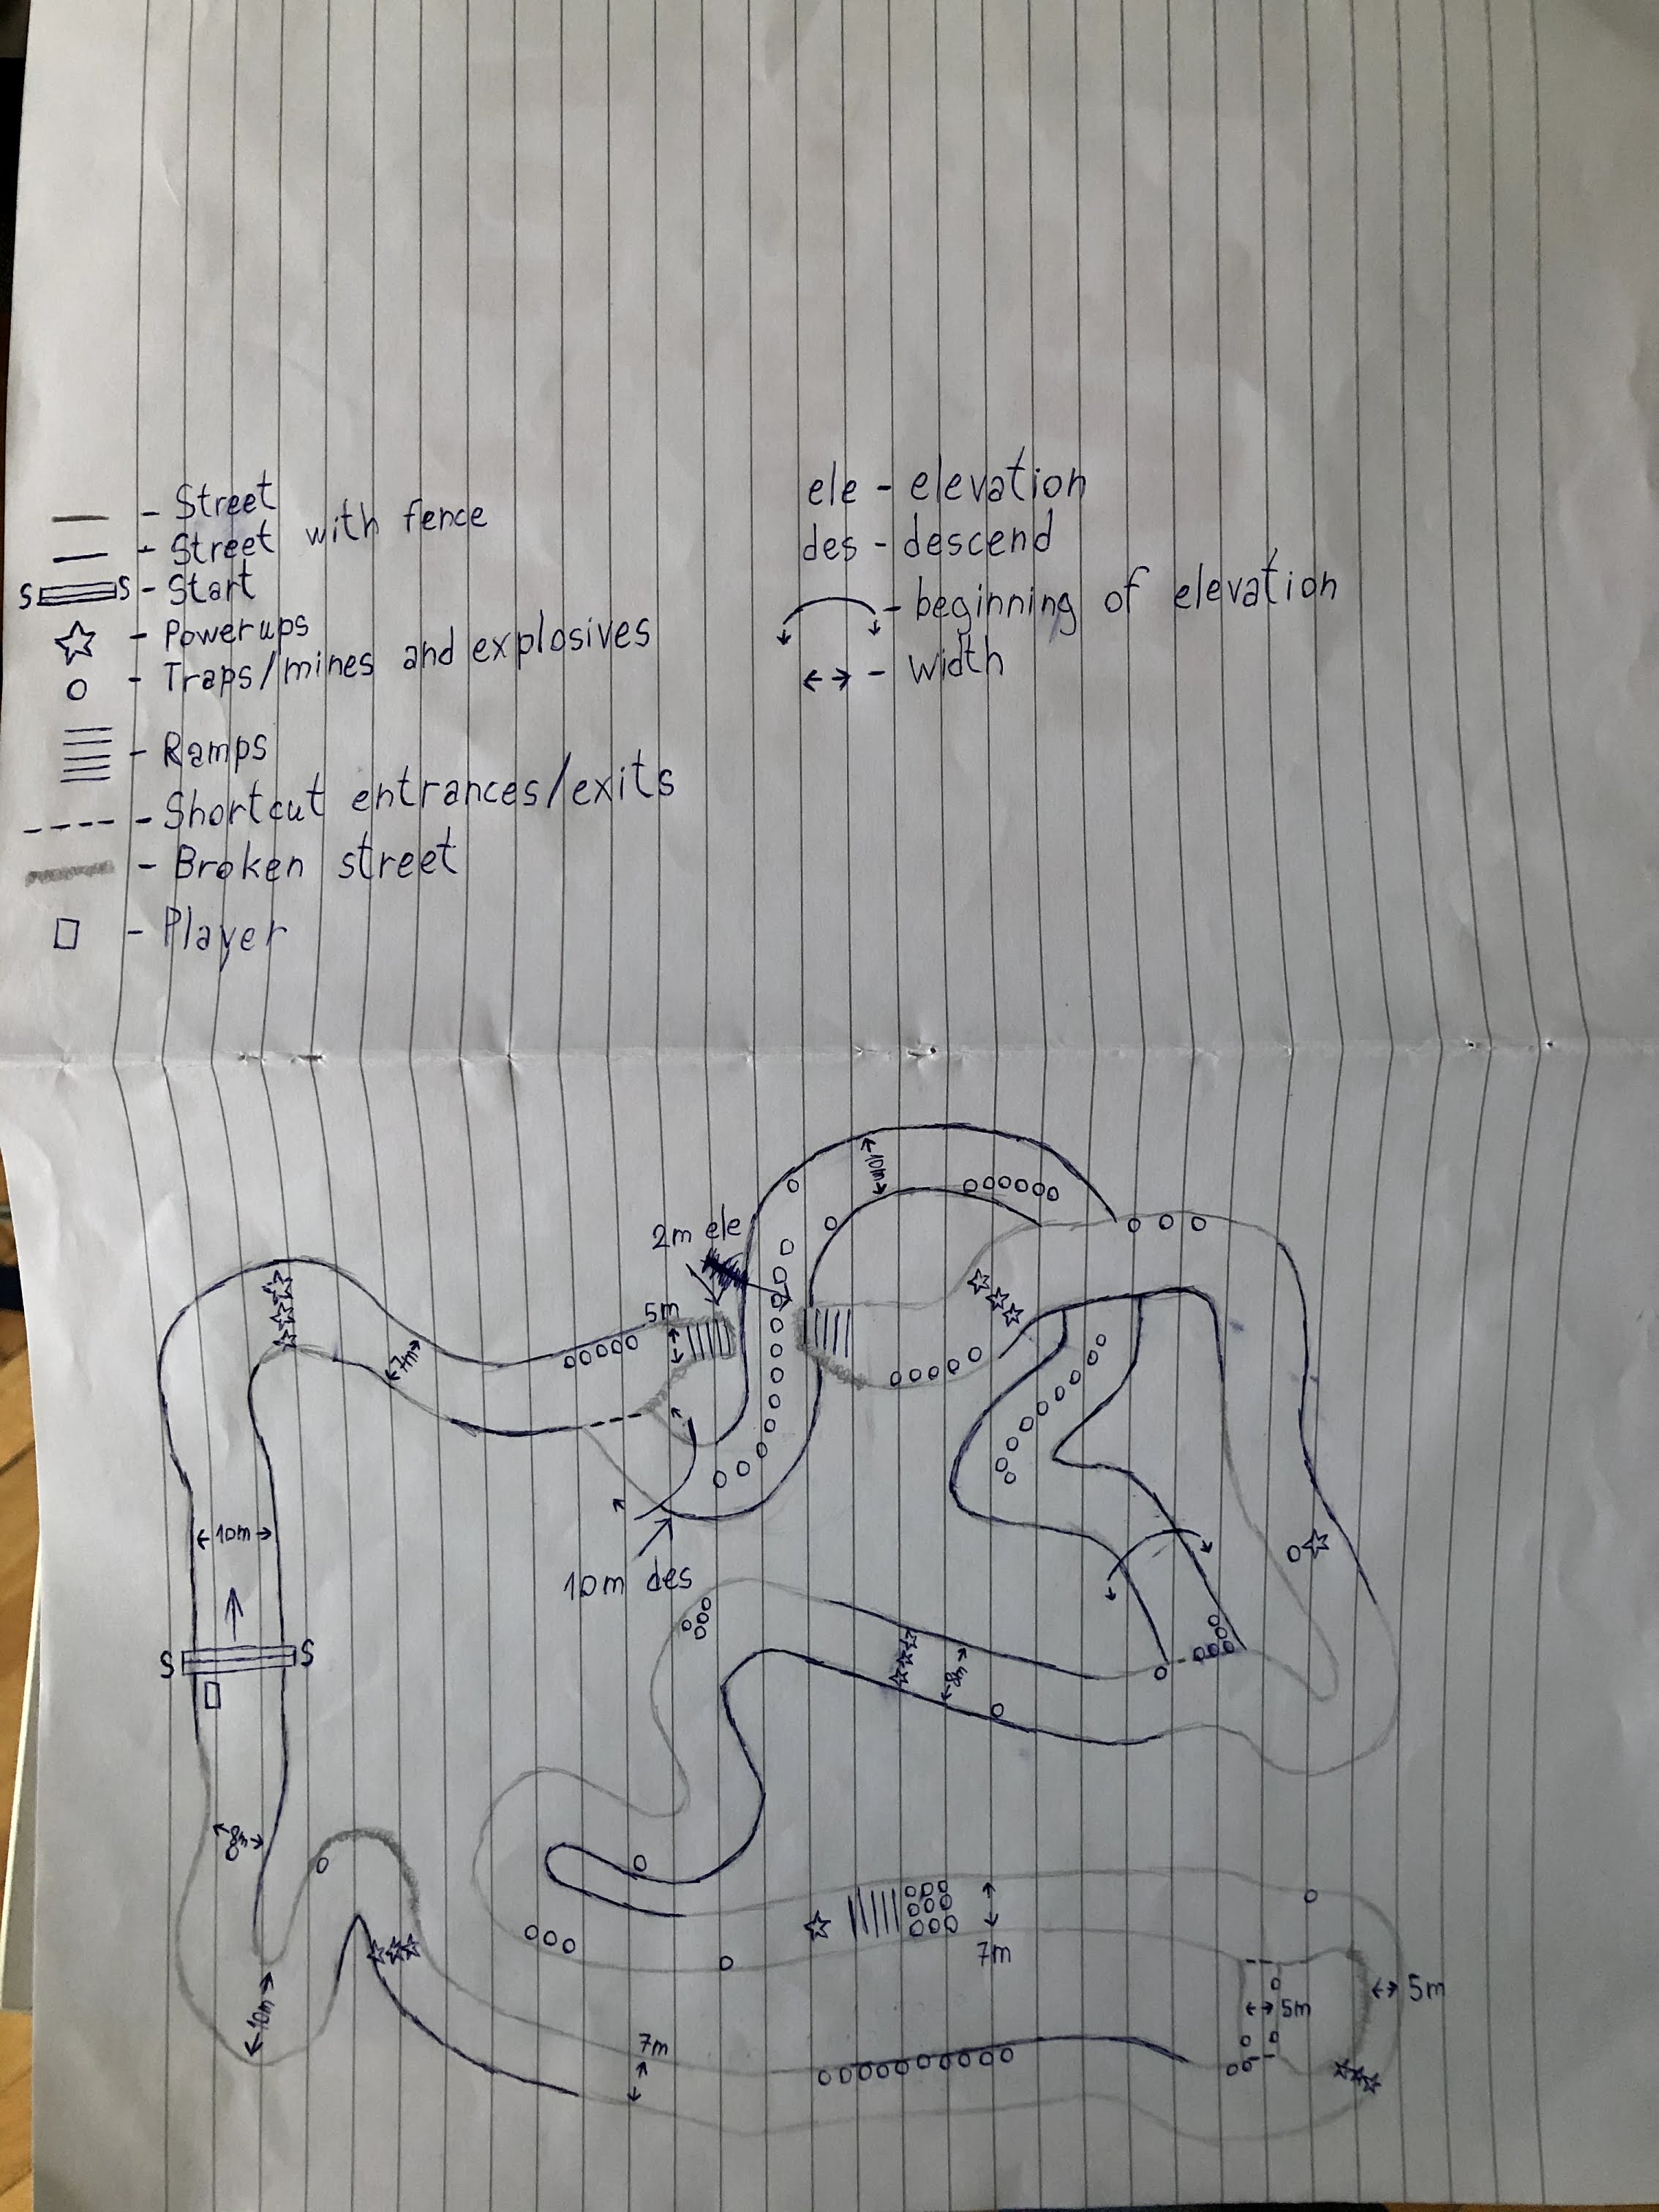 — Street
— Street with fence
S S – Start
– Powerups
– Traps/mines and explosives
– Ramps
---- – Shortcut entrances/exits
– Broken street
– Player
ele – elevation
des – descend
– beginning of elevation
↔ – width
10m
2m ele
5m
7m
10m
10m des
S S
8m
8m
7m
5m
5m
10m
7m